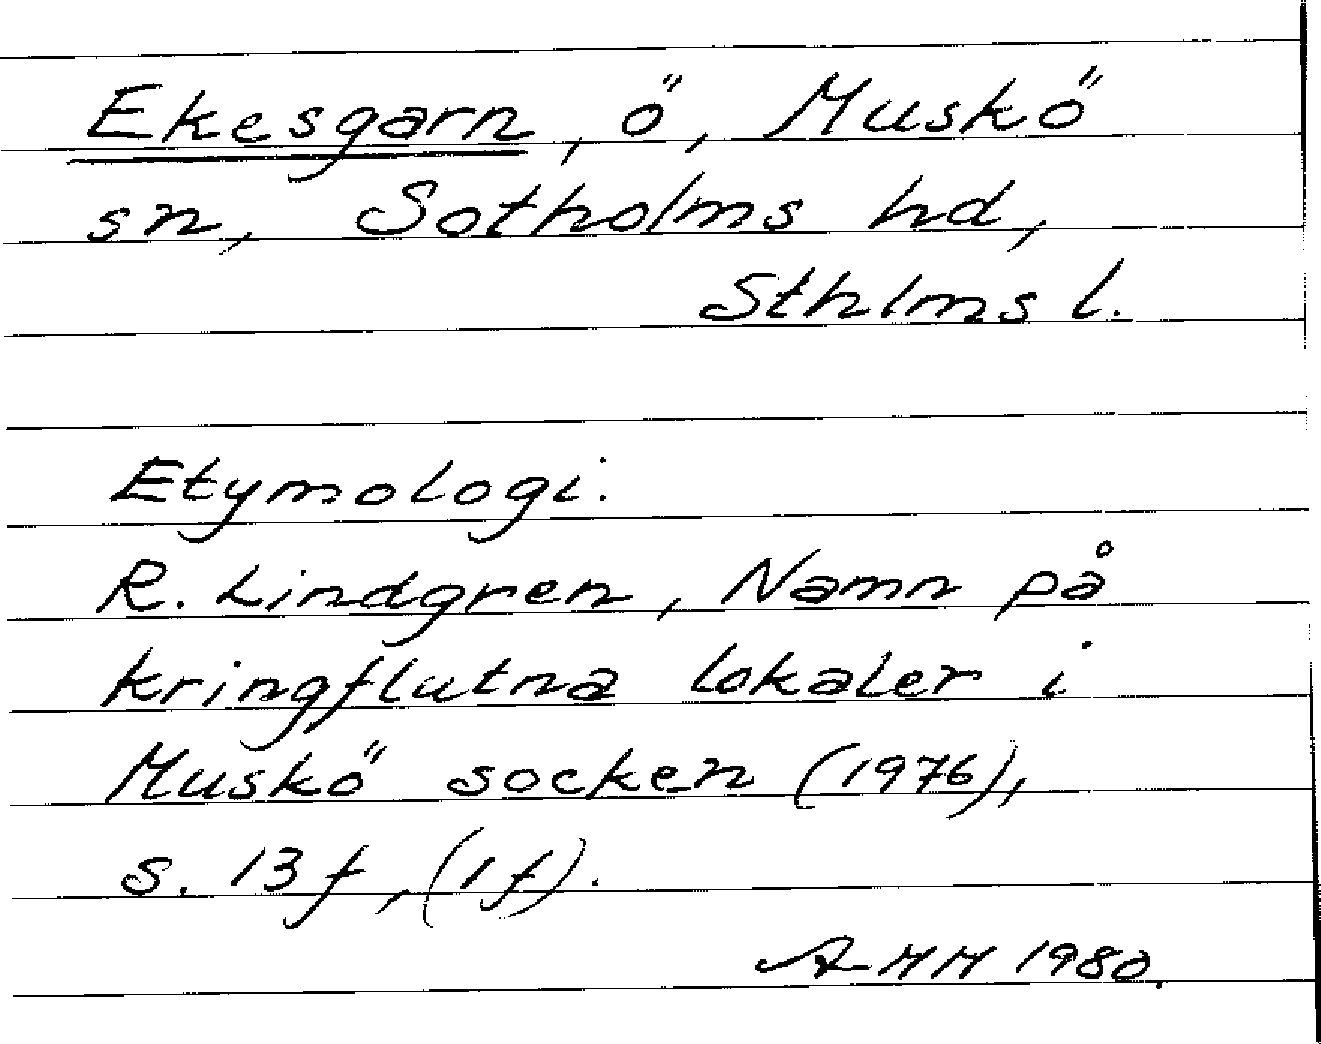 Ekesgarn, ö, Muskö
sn, Sotholms hd,
Sthlms l.
Etymologi.
R. Lindgren, Namn på
kringflutna lokaler i
Muskö socken (1976),
s. 13 f, (1 f).
A-MH 1980.